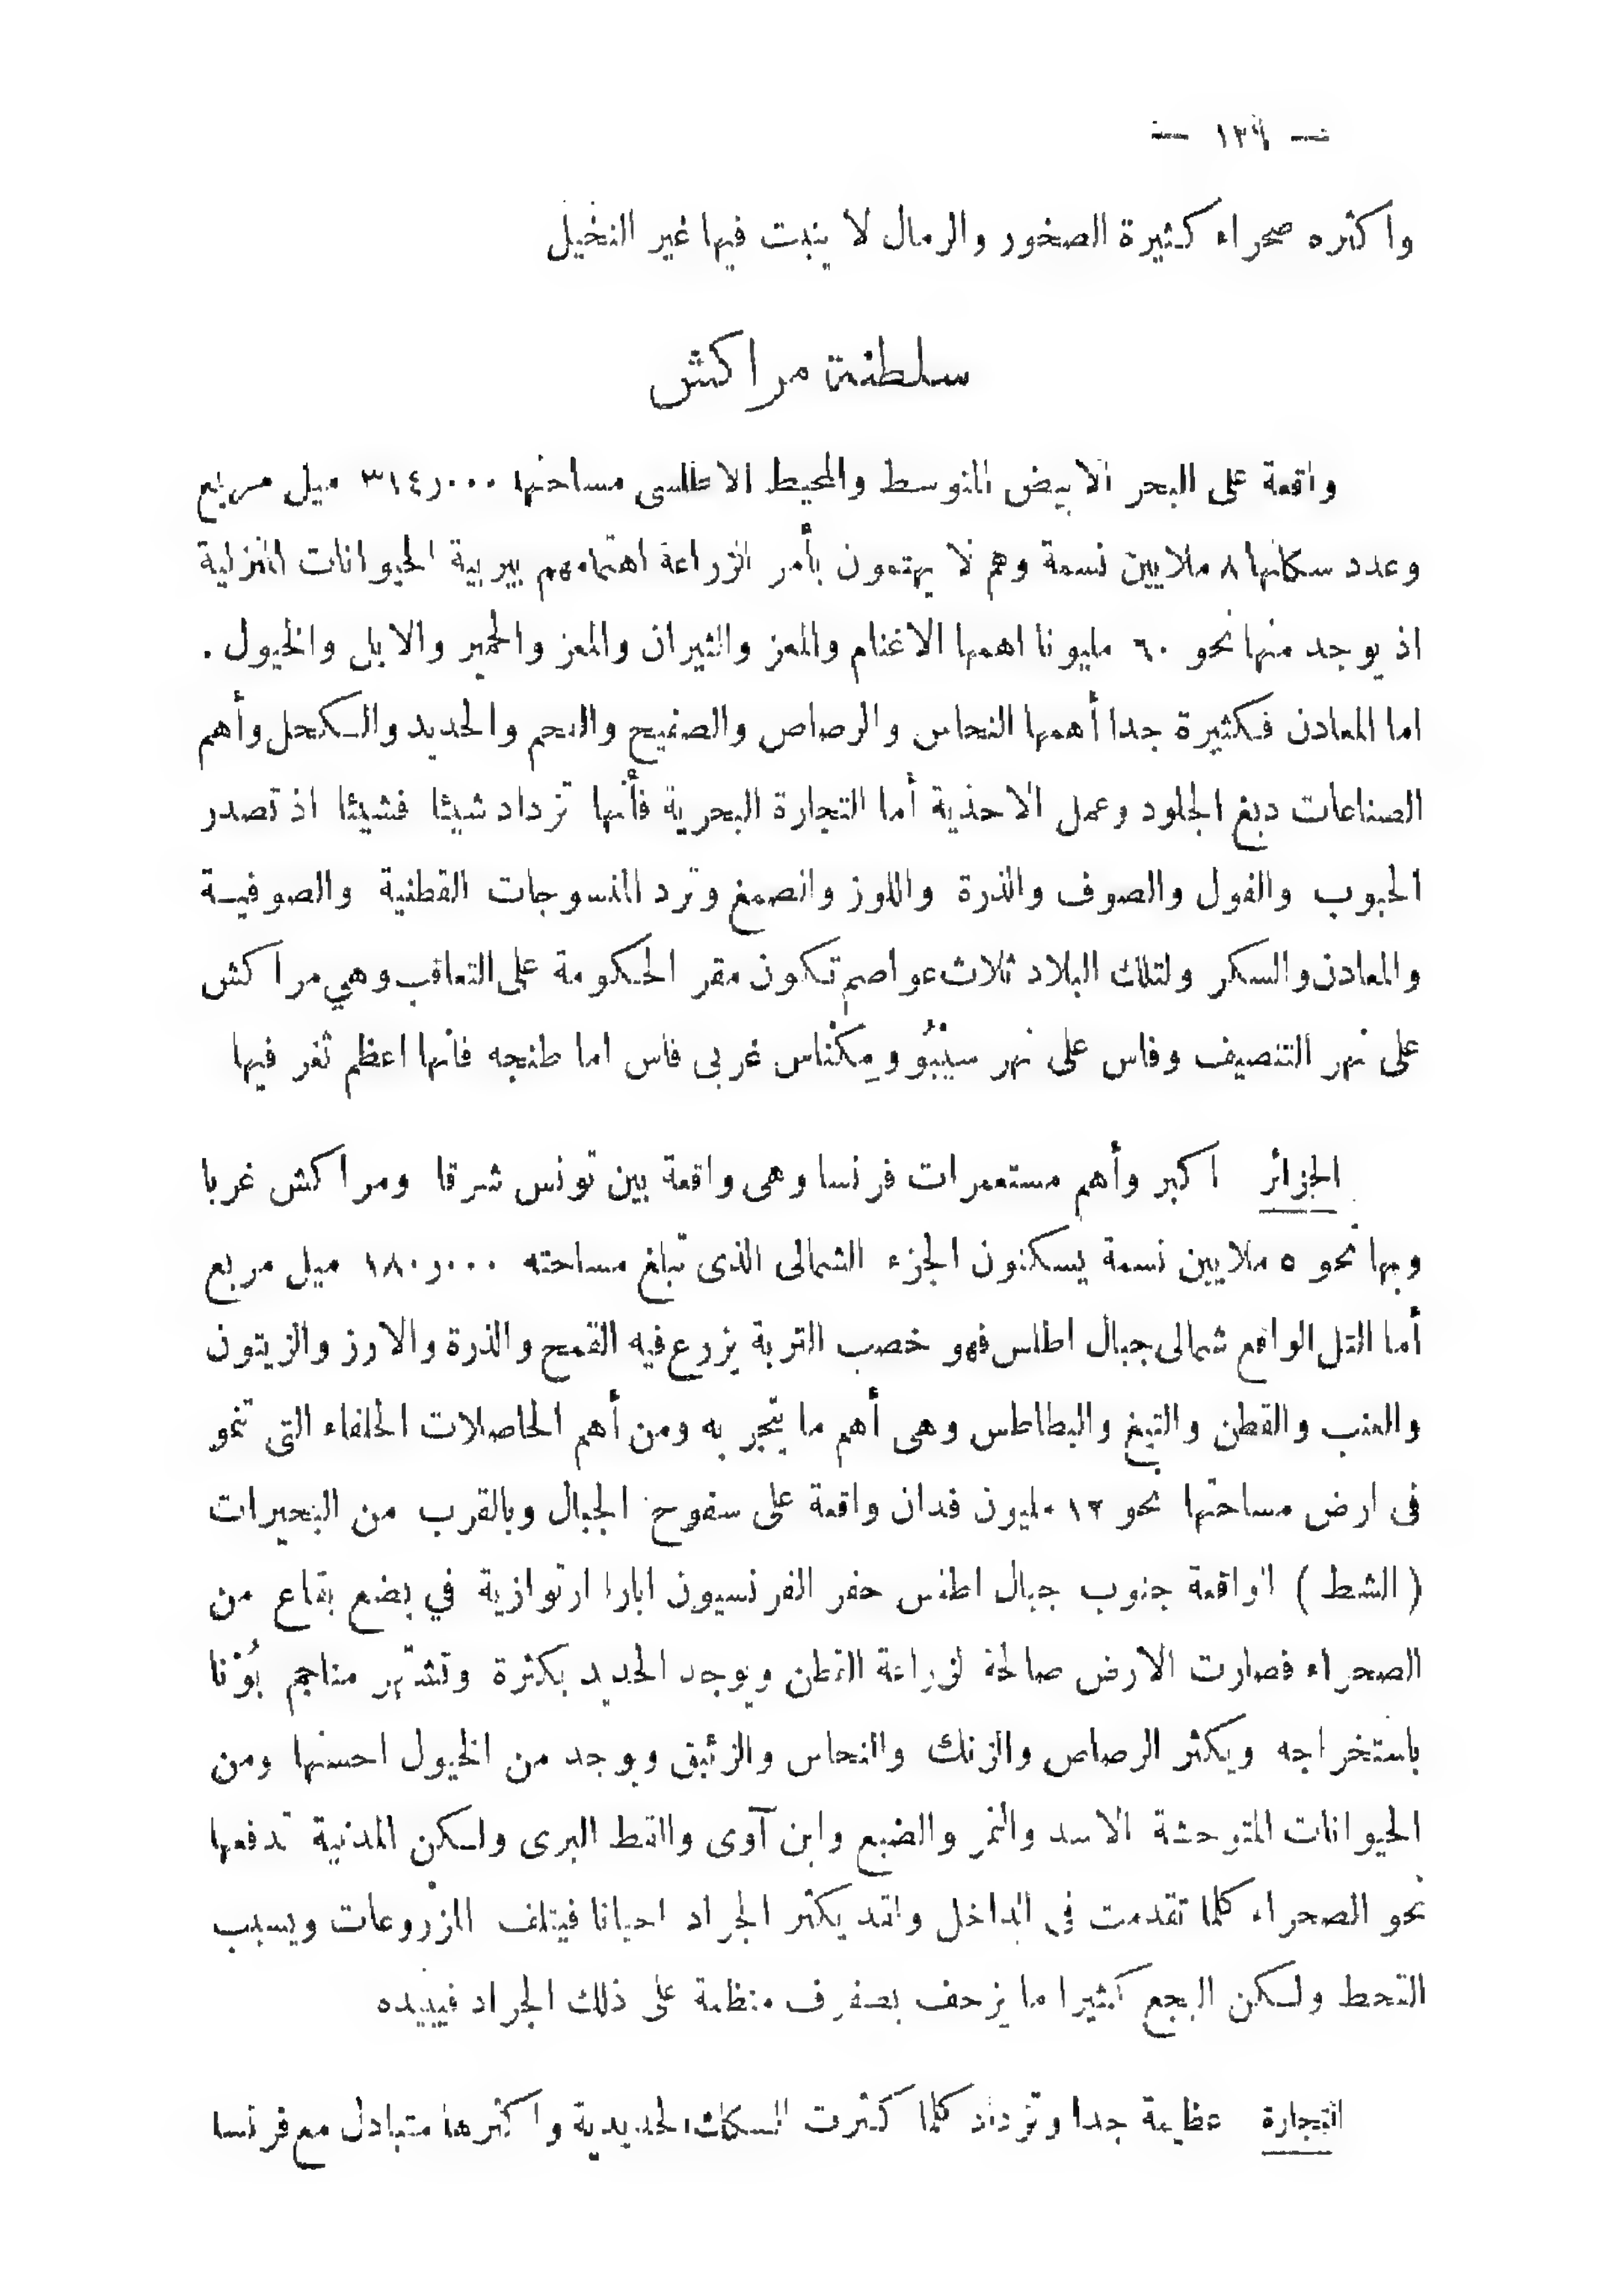 — ١٣٩ —
واكثره صحراء كثيرة الصخور والرمال لا ينبت فيها غير النخيل
سلطنة مراكش
واقعة على البحر الابيض المتوسط والمحيط الاطلسى مساحتها ٣١٤٫٠٠٠ ميل مربع
وعدد سكانها ٨ ملايين نسمة وهم لا يهتمون بأمر الزراعة اهتمامهم بتربية الحيوانات المنزلية
اذ يوجد منها نحو ٦٠ مليونا اهمها الاغنام والمعز والثيران والمعز والحمير والابل والخيول .
اما المعادن فكثيرة جدا أهمها النحاس والرصاص والصفيح والفحم والحديد والكحل وأهم
الصناعات دبغ الجلود وعمل الاحذية أما التجارة البحرية فأنها تزداد شيئا فشيئا اذ تصدر
الحبوب والفول والصوف والذرة واللوز والصمغ وترد المنسوجات القطنية والصوفية
والمعادن والسكر ولتلك البلاد ثلاث عواصم تكون مقر الحكومة على التعاقب وهي مراكش
على نهر التنصيف وفاس على نهر سيْبُو ومِكْناس غربى فاس اما طنجه فانها اعظم ثغر فيها
الجزائر اكبر وأهم مستعمرات فرنسا وهى واقعة بين تونس شرقا ومراكش غربا
وبها نحو ٥ ملايين نسمة يسكنون الجزء الشمالى الذى تبلغ مساحته ١٨٠٫٠٠٠ ميل مربع
أما التل الواقع شمالى جبال اطلس فهو خصب التربة يزرع فيه القمح والذرة والارز والزيتون
والعنب والقطن والتبغ والبطاطس وهى أهم ما يتجر به ومن أهم الحاصلات الحلفاء التى تنمو
فى ارض مساحتها نحو ١٢ مليون فدان واقعة على سفوح الجبال وبالقرب من البحيرات
( الشط ) الواقعة جنوب جبال اطلس حفر الفرنسيون ابارا ارتوازية في بضع بقاع من
الصحراء فصارت الارض صالحة لزراعة القطن ويوجد الحديد بكثرة وتشتهر مناجم بُوْنا
باستخراجه ويكثر الرصاص والزنك والنحاس والزئبق ويوجد من الخيول احسنها ومن
الحيوانات المتوحشة الاسد والنمر والضبع وابن آوى والقط البرى ولكن المدنية تدفعها
نحو الصحراء كلما تقدمت فى الداخل ولقد يكثر الجراد احيانا فيتلف المزروعات ويسبب
القحط ولكن البجع كثيرا ما يزحف بصفوف منظمة على ذلك الجراد فيبيده
التجارة عظيمة جدا وتزداد كلما كثرت السكك الحديدية واكثرها متبادل مع فرنسا